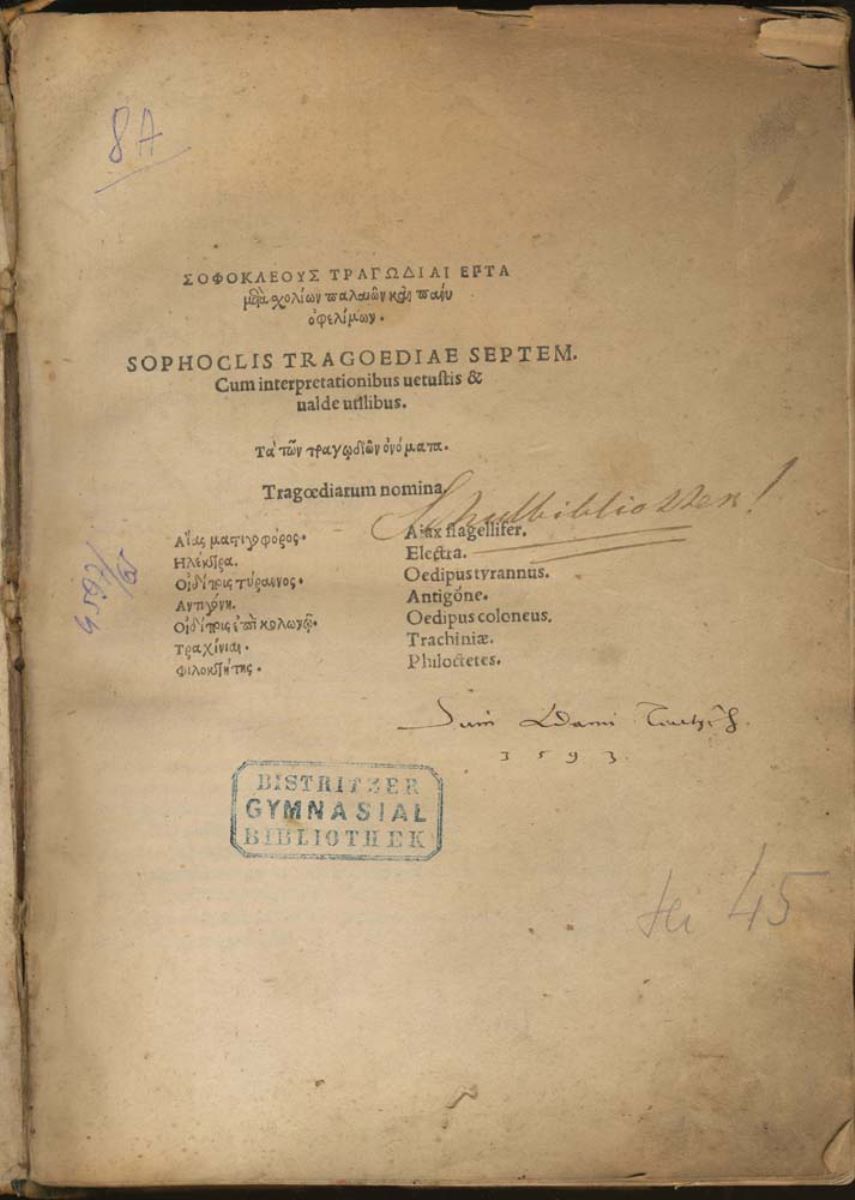 8A
ΣΟΦΟΚΛΕΟΥΣ ΤΡΑΓΩΔΙΑΙ ΕΠΤΑ
μετὰ σχολίων παλαιῶν καὶ πάνυ
ὀφελίμων.
SOPHOCLIS TRAGOEDIAE SEPTEM.
Cum interpretationibus uetustis &
ualde utilibus.
Τὰ τῶν τραγῳδιῶν ὀνόματα.
Tragœdiarum nomina
Schulbibliothek!
Αἴας μαστιγοφόρος. Aiax flagellifer.
Ηλέκτρα. Electra.
Οἰδίπους τύραννος. Oedipus tyrannus.
Αντιγόνη. Antigóne.
Οἰδίπους ἐπὶ κολωνῷ. Oedipus coloneus.
Τραχίνιαι. Trachiniæ.
Φιλοκτήτης. Philoctetes.
Sum Adami
1593.
BISTRITZER
GYMNASIAL
BIBLIOTHEK
45